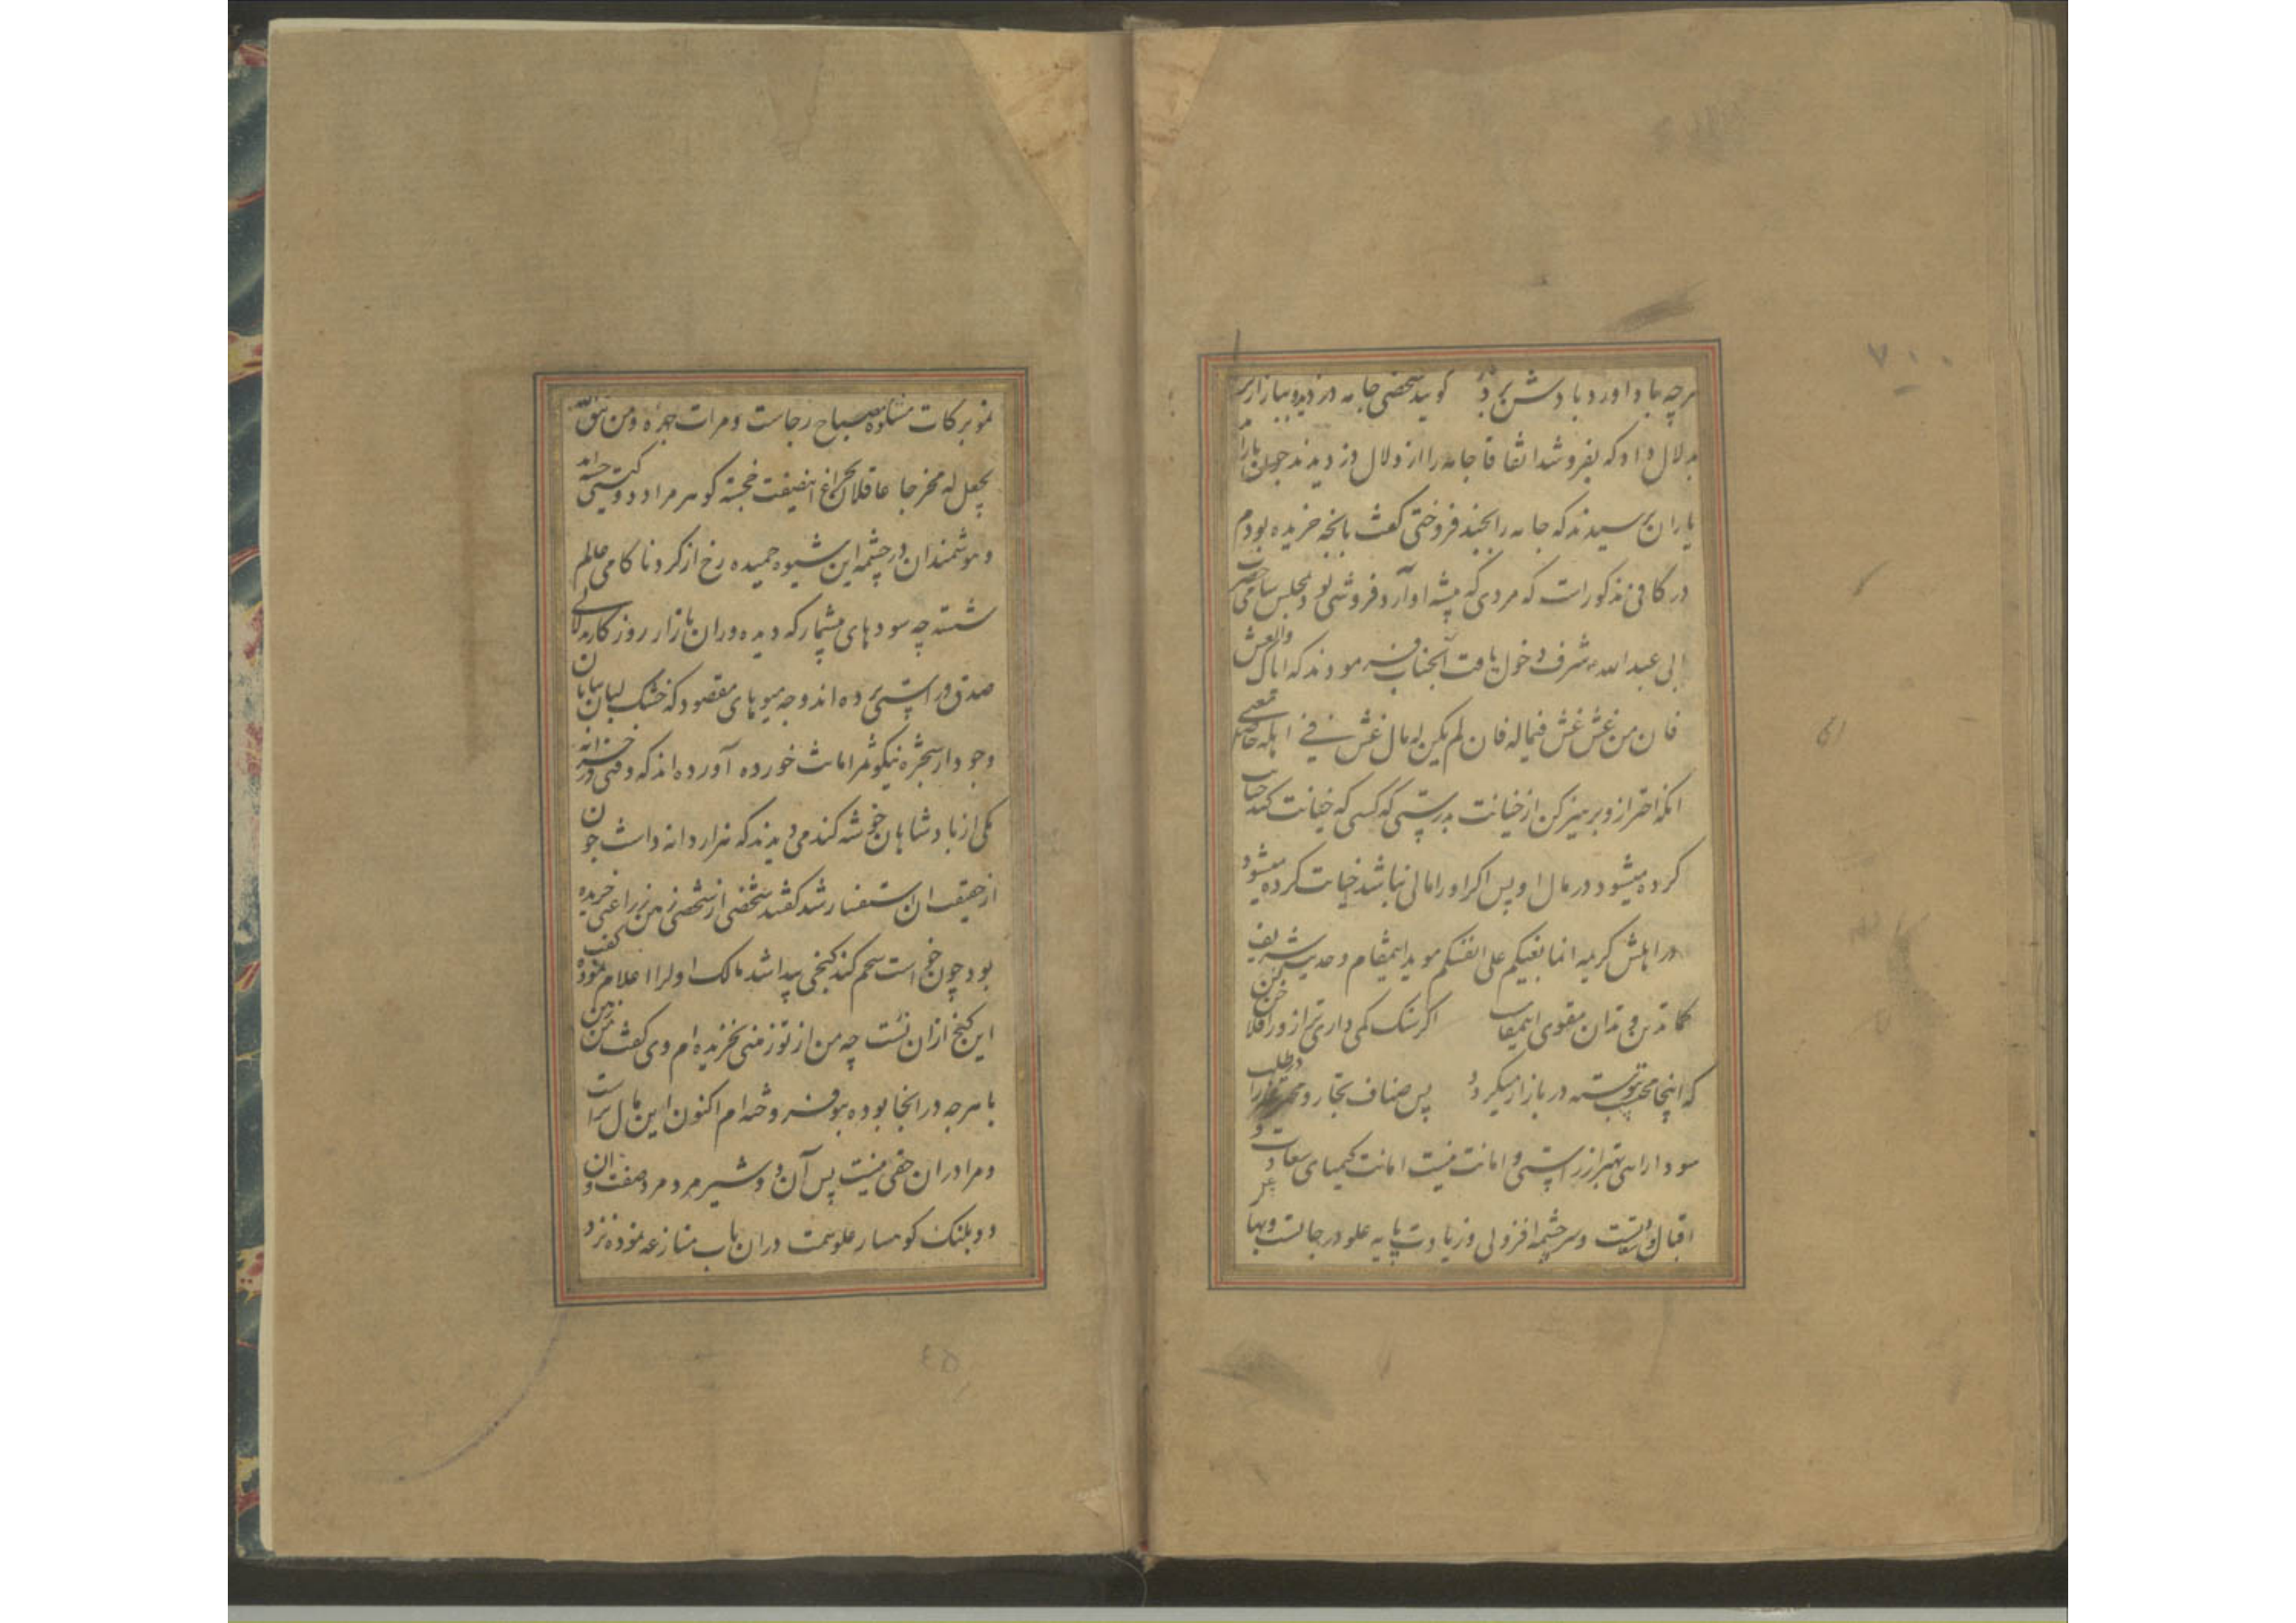 هرچه باد اورد بادش برد گویند شخصی جامه دزدید و ببازار برد
بدلال داد که بفروشد اتفاقا جامه را از دلال دزدیدند چون یارا
یاران پرسیدند که جامه را بچند فروختی کفت بانچه خریده بودم
در کافی مذکور است که مردی که پیشه او آرد فروشی بود بمجلس سامی حضرت
ابی عبد الله شرف دخول یافت آنجناب فرمودند که ایاک والغش
فان من غش غش فی ماله فان لم یکن له مال غش فی اهله معنی
انکه احتراز و پرهیز کن از خیانت بدرستی که کسی که خیانت کند خیانت
کرده میشود در مال او پس اکر او را مالی نباشد خیانت کرده میشود
در اهلش کریمه انما بغیکم علی انفسکم موید اینمقام و حدیث شریف
کما تدین تدان مقوی اینمقال اکر سنک کمی داری ترازو را فلاخن کن
که اینجا محتسب پیوسته در بازار میکردد پس اصناف تجار و در طلب
سود را راهی بهتر از راستی و امانت نیست امانت کیمیای سعادت و
اقبالست و سرچشمه افزونی و زیادت پایه علو درجاتست و بها
نمو برکات مشکوة مصباح رجاست و مرات چهره ومن یتق الله
یجعل له مخرجا عاقلان بچراغ اینصفت خجسته کوهر مراد دو کیتی جسته اند
و هوشمندان در چشمه این شیوه حمیده رخ از کرد ناکامی عالم
شسته چه سودهای بیشمار که دیده وران بازار روزکار بدلالی
صدق و راستی برده اند و چه میوهای مقصود که خشک لبان بیابان
وجود از شجره نیکو ثمر امانت خورده آورده اند که وقتی در خزانه
یکی از پادشاهان خوشه کندمی دیدند که هزار دانه داشت چون
از حقیقت ان استفسار شد کفتند شخصی از شخصی زمین زراعتی خریده
بود چون خواست تخم کند کنجی پیدا شد مالک اول را اعلام نموده کفت
این کنج از ان تست چه من از تو زمین خریده ام وی کفت من زمین
با هرچه در انجا بوده بتو فروخته ام اکنون این مال تراست
و مرا در ان حقی نیست پس آن دو شیر مرد مردصفت و ان
دو پلنک کوهسار علو همت در ان باب منازعه نموده نزد
٧٠٠
٤٥